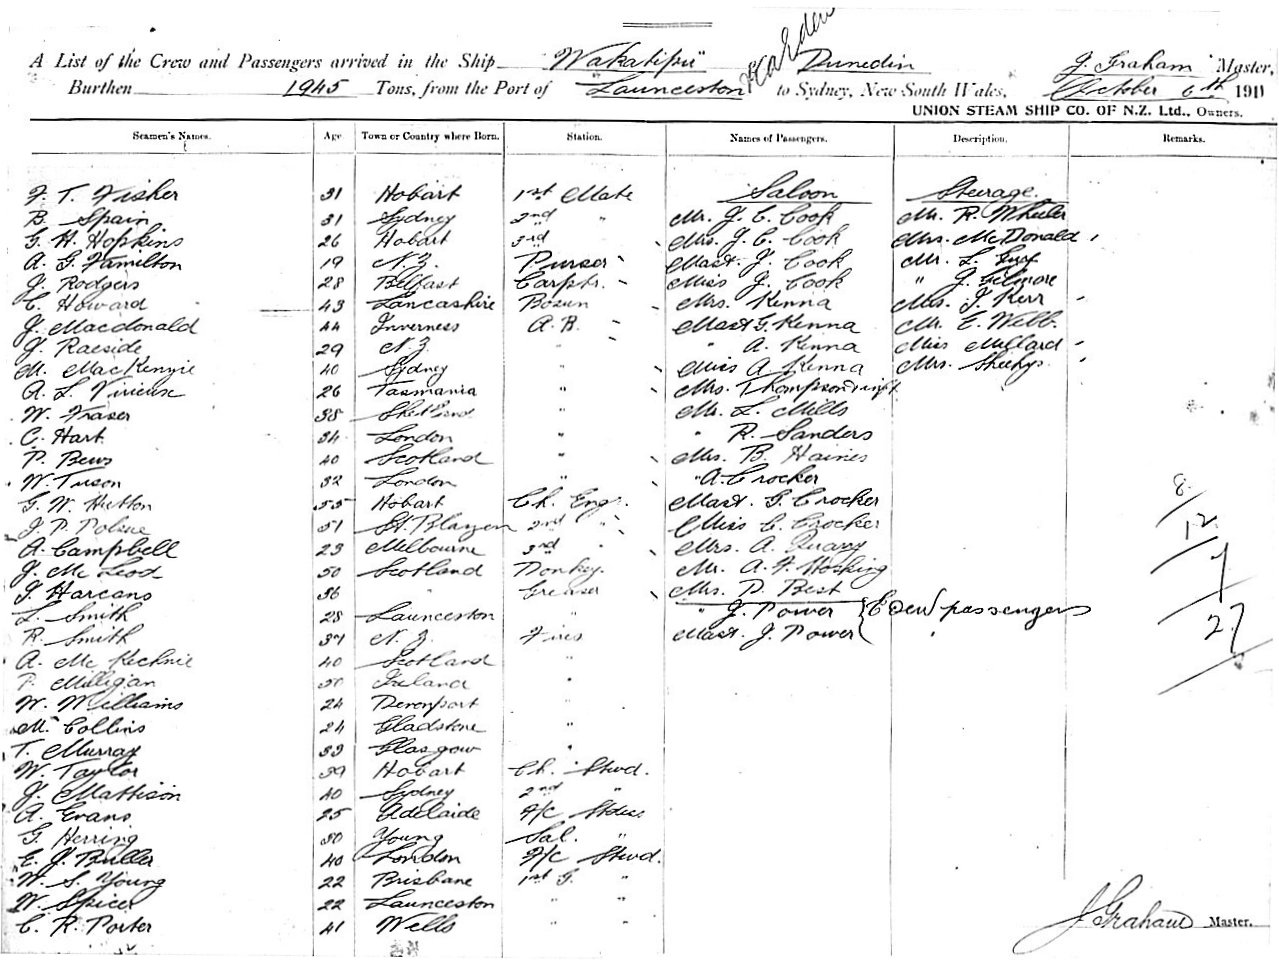 A List of the Crew and Passengers arrived in the Ship "Wakatipu" Dunedin J. Graham Master,
Burthen 1945 Tons, from the Port of Launceston to Sydney, New South Wales, October 6th 1911
UNION STEAM SHIP CO. OF N.Z. Ltd., Owners.
Seamen's Names. Age Town or Country where Born. Station. Names of Passengers. Description. Remarks.
F. T. Fisher 31 Hobart 1st Mate Saloon Steerage
B. Spain 31 Sydney 2nd " Mr. J. C. Cook Mr. R. Wheeler
G. H. Hopkins 26 Hobart 3rd Mrs. J. C. Cook Mrs. McDonald
A. G. Hamilton 19 N.Z. Purser Mast. J. Cook Mr. L.
J. Rodgers 28 Belfast Carptr. Miss J. Cook " J. Gilmore
C. Howard 43 Lancashire Bosun Mrs. Kenna Mrs. J. Kerr
J. Macdonald 44 Inverness A.B. Mast G. Kenna Mr. E. Webb.
J. Raeside 29 N.Z. " " A. Kenna Miss Millard
M. MacKenzie 40 Sydney " Miss A Kenna Mrs. Sheehys
A. L. 26 Tasmania " Mrs. Thompson & inft
W. Fraser 38 Shetland " Mr. L. Mills
C. Hart 34 London " " R. Sanders
P. Bews 40 Scotland " Mrs. B. Haines
W. Tuson 32 London " " A. Crocker
G. W. Hutton 55 Hobart Ch. Engr. Mast. G. Crocker 8
J. P. 51 St. Blazey 2nd " Miss C. Crocker 12
A. Campbell 23 Melbourne 3rd " Mrs. A. Quary
J. McLeod 50 Scotland Donkey. Mr. A. F. Hosking 7
J. Harcans 36 " Greaser Mrs. P. Best
L. Smith 28 Launceston " " J. Power { Eden passengers
R. Smith 37 N.Z. Fires Mast. J. Power 27
A. McKechnie 40 Scotland "
P. Milligan 30 Ireland "
W. Williams 24 Devonport "
M. Collins 24 Gladstone "
T. Murray 33 Glasgow "
W. Taylor 39 Hobart Ch. Stwd.
J. Mattison 40 Sydney 2nd "
A. Evans 25 Adelaide F/C Stdess
G. Herring 30 Young Sal. "
E. J. Buller 40 London F/C Stwd.
W. S. Young 22 Brisbane 1st G. "
W. Spicer 22 Launceston " "
C. R. Porter 41 Wells " "
J Graham Master.